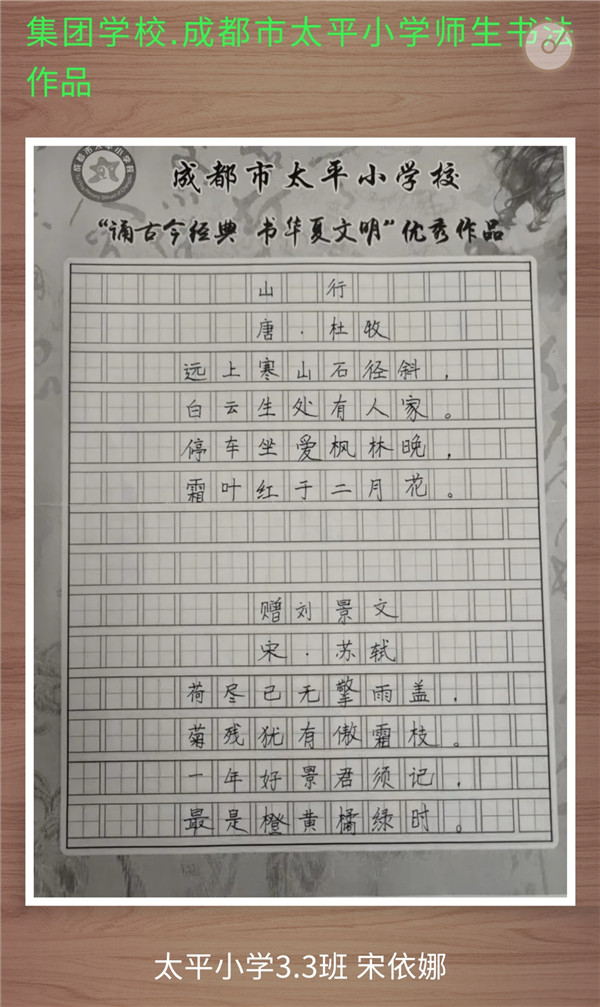 集团学校.成都市太平小学师生书法
作品
成都市太平小学校
“诵古今经典 书华夏文明”优秀作品
山 行
唐·杜牧
远上寒山石径斜，
白云生处有人家。
停车坐爱枫林晚，
霜叶红于二月花。
赠刘景文
宋·苏轼
荷尽已无擎雨盖，
菊残犹有傲霜枝。
一年好景君须记，
最是橙黄橘绿时。
太平小学3.3班 宋依娜